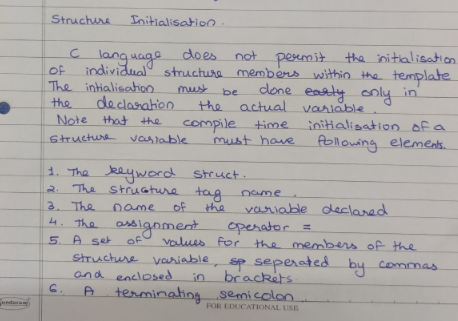 Structure Initialisation.
C language does not permit the initialisation
of individual structure members within the template
The intialisation must be done early only in
the declaration the actual variable.
Note that the compile time initialisation of a
structure variable must have following elements.
1. The keyword struct.
2. The structure tag name.
3. The name of the variable declared
4. The assignment operator =
5. A set of values for the members of the
structure variable, sp seperated by commas
and enclosed in brackets.
6. A terminating semicolon
FOR EDUCATIONAL USE